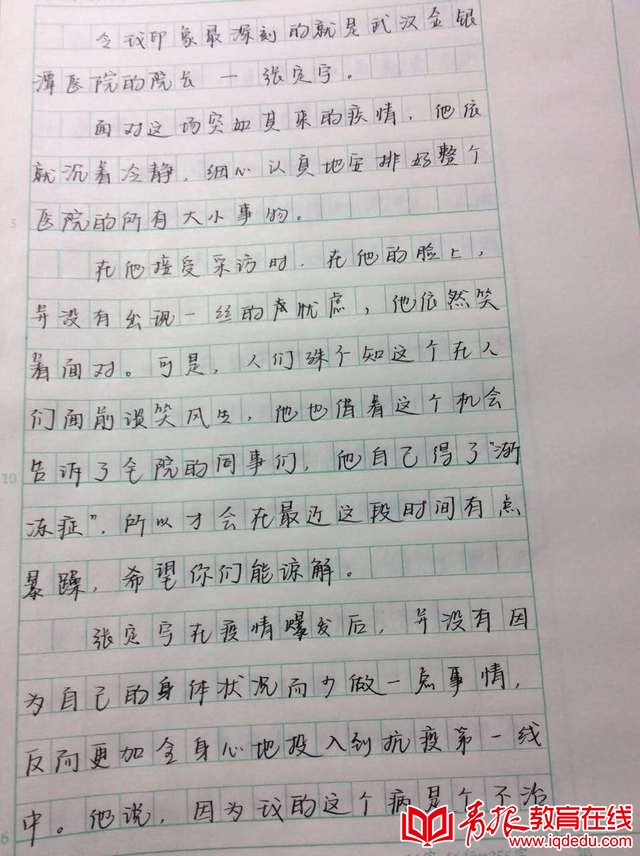 令我印象最深刻的就是武汉金银
潭医院的院长一张定宇。
面对这场突如其来的疾情,他依
就沉着冷静,细心认真地安排好整个
医院的所有大小事物。
在他接受采访时,在他的脸上,
并没有出现一丝的焦忧虑,他依然笑
着面对。可是,人们殊不知这个在人
们面前谈笑风生,他也借着这个机会
告诉了全院的同事们,他自己得了“渐
冻症”,所以才会在最近这段时间有点
暴躁,希望你们能谅解。
张定宇在疫情爆发后,并没有因
为自己的身体状况而少做一点事情,
反而更加全身心地投入到抗疫第一线
中。他说,因为我的这个病是个不治
5
10
青报教育在线
www.iqdedu.com